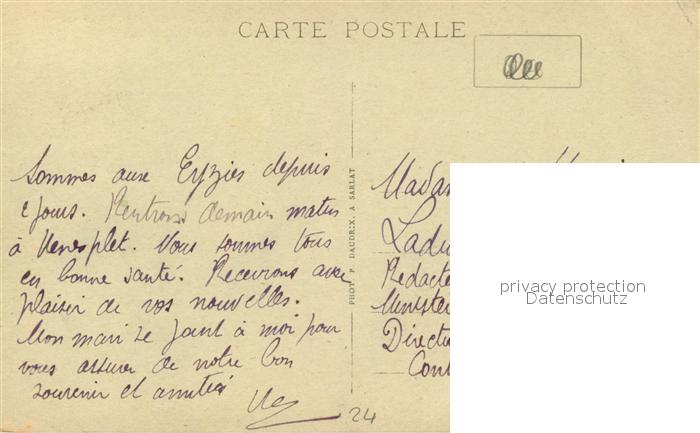 CARTE POSTALE
Sommes aux Eyzies depuis
2 jours. Rentrons demain matin
à
Vous sommes tous
en bonne santé. Recevrons avec
plaisir de vos nouvelles.
Mon mari se joint à moi pour
vous assurer de notre bon
souvenir et amitié
PHOT. P. DAUDRIX, A SARLAT
Madam
Ladu
Rédacte
Minister
Directi
Cont
privacy protection
Datenschutz
24